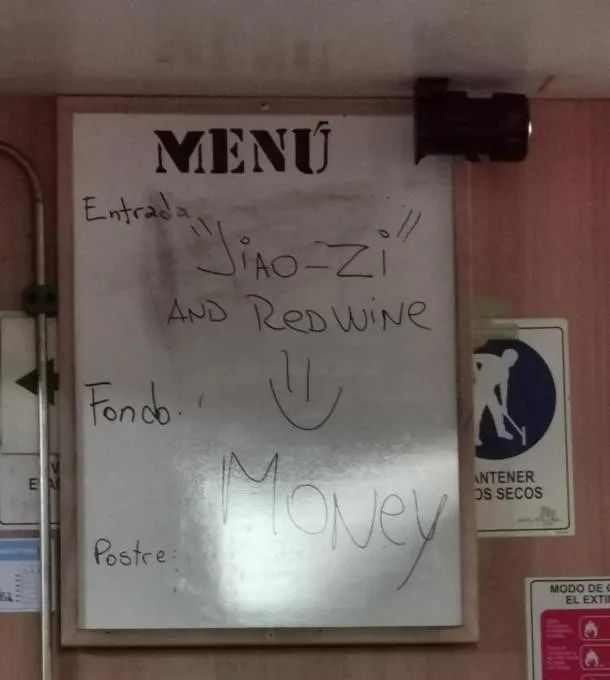 MENÚ
Entrada
"Jiao-Zi"
AND REDWINE
Fondo.
Money
Postre:
ANTENER
OS SECOS
MODO DE
EL EXTIN